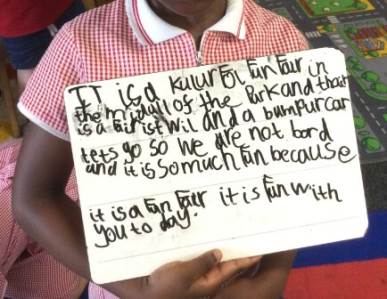 IT is a kulur Fol Fun Fair in
the middull of the Park and that
is a fair ist wil and a bumpur car
lets go so we are not bord
and it is so much fun because
it is a Fun Fair it is Fun with
you to day.